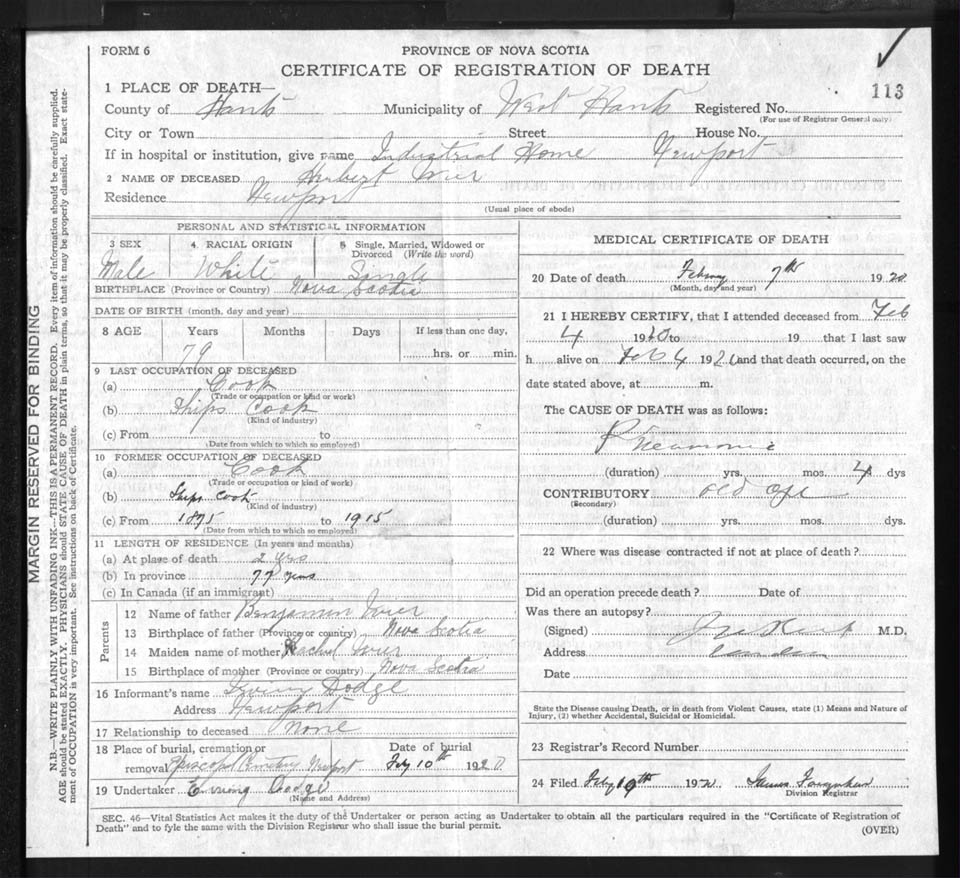 FORM 6
PROVINCE OF NOVA SCOTIA
CERTIFICATE OF REGISTRATION OF DEATH
113
1 PLACE OF DEATH—
County of Hants Municipality of West Hants Registered No.
(For use of Registrar General only)
City or Town Street House No.
If in hospital or institution, give name Industrial Home Newport
2 NAME OF DECEASED Herbert
Residence Newport
(Usual place of abode)
PERSONAL AND STATISTICAL INFORMATION
3 SEX 4. RACIAL ORIGIN 5 Single, Married, Widowed or Divorced (Write the word)
Male White Single
BIRTHPLACE (Province or Country) Nova Scotia
DATE OF BIRTH (month, day and year)
8 AGE Years Months Days If less than one day,
79 hrs. or min.
9 LAST OCCUPATION OF DECEASED
(a) Cook
(Trade or occupation or kind or work)
(b) Ships Cook
(Kind of industry)
(c) From to
(Date from which to which so employed)
10 FORMER OCCUPATION OF DECEASED
(a) Cook
(Trade or occupation or kind of work)
(b) Ships Cook
(Kind of industry)
(c) From 1895 to 1915
(Date from which to which so employed)
11 LENGTH OF RESIDENCE (In years and months)
(a) At place of death 2 yrs
(b) In province 77 years
(c) In Canada (if an immigrant)
Parents
12 Name of father Benjamin
13 Birthplace of father (Province or country) Nova Scotia
14 Maiden name of mother Rachel
15 Birthplace of mother (Province or country) Nova Scotia
16 Informant's name Dodge
Address Newport
17 Relationship to deceased None
18 Place of burial, cremation or removal Episcopal Cemetery Newport
Date of burial Feby 10th 1920
19 Undertaker Dodge
(Name and Address)
MEDICAL CERTIFICATE OF DEATH
20 Date of death 7th 1920
(Month, day and year)
21 I HEREBY CERTIFY, that I attended deceased from Feb
4 1920 to 19 that I last saw
h alive on Feb 4 1920 and that death occurred, on the
date stated above, at m.
The CAUSE OF DEATH was as follows:
Pneumonia
(duration) yrs. mos. 4 dys
CONTRIBUTORY old age
(Secondary)
(duration) yrs. mos. dys.
22 Where was disease contracted if not at place of death?
Did an operation precede death? Date of
Was there an autopsy?
(Signed) M.D.
Address
Date
State the Disease causing Death, or in death from Violent Causes, state (1) Means and Nature of
Injury, (2) whether Accidental, Suicidal or Homicidal.
23 Registrar's Record Number
24 Filed Feby 19th 192 James
Division Registrar
SEC. 46—Vital Statistics Act makes it the duty of the Undertaker or person acting as Undertaker to obtain all the particulars required in the "Certificate of Registration of
Death" and to fyle the same with the Division Registrar who shall issue the burial permit.
(OVER)
MARGIN RESERVED FOR BINDING
N.B.—WRITE PLAINLY WITH UNFADING INK—THIS IS A PERMANENT RECORD. Every item of information should be carefully supplied.
AGE should be stated EXACTLY. PHYSICIANS should STATE CAUSE OF DEATH in plain terms, so that it may be properly classified. Exact state-
ment of OCCUPATION is very important. See instructions on back of Certificate.